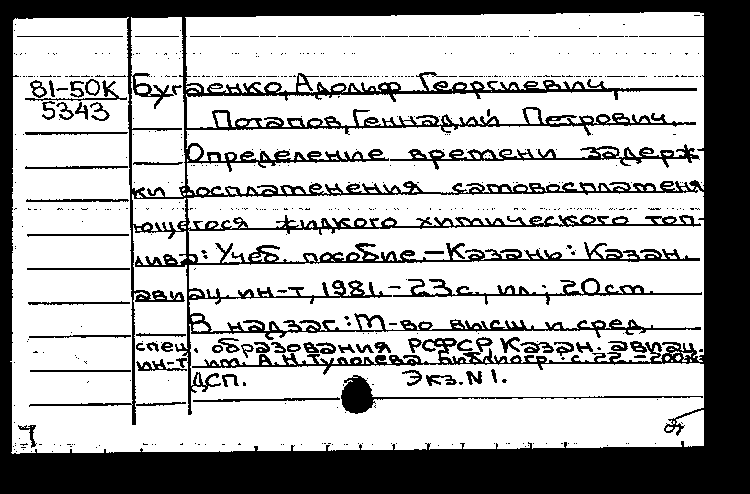 81-50К
5343
Бугаенко, Адольф Георгиевич,
Потапов, Геннадий Петрович.
Определение времени задерж-
ки воспламенения самовоспламеня
ющегося жидкого химического топ-
лива: Учеб. пособие.—Казань: Казан.
авиац. ин-т, 1981.- 23с., ил.; 20см.
В надзаг.: М-во высш. и сред.
спец. образования РСФСР, Казан. авиац.
ин-т им. А.Н.Туполева. Библиогр.: с.22.-200экз
ДСП. Экз.N1.
7